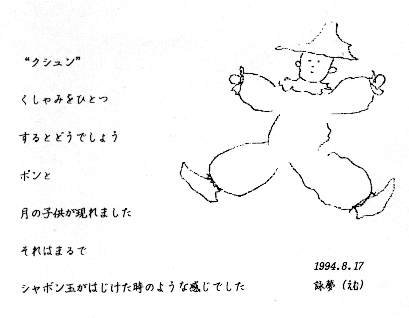 “クシュン”
くしゃみをひとつ
するとどうでしょう
ポンと
月の子供が現れました
それはまるで
シャボン玉がはじけた時のような感じでした
1994.8.17
詠夢（えむ）